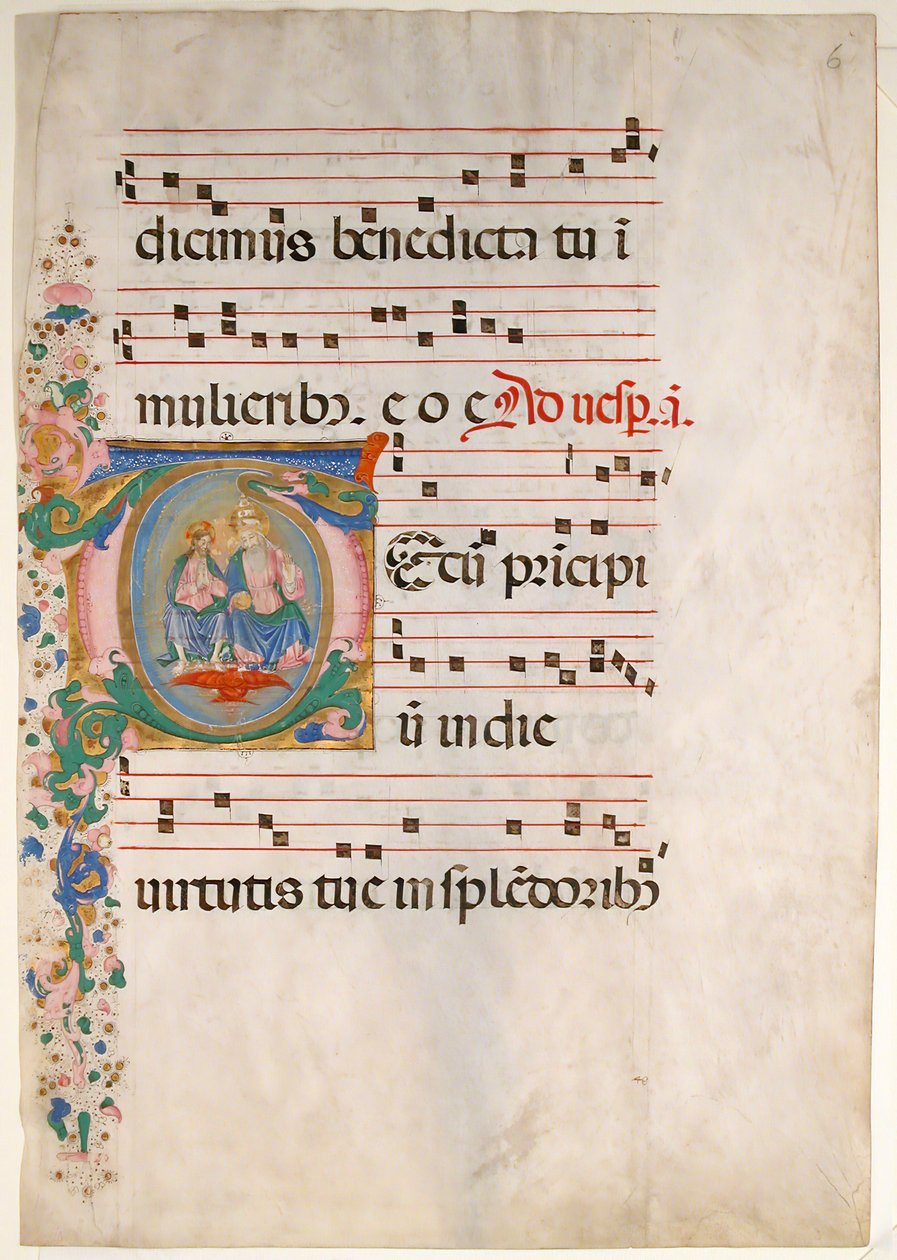 6
dicimus benedicta tu ī
mulieribꝯ. e o e Ad uesꝑ. ā.
TEcū prīcipi
ū in dic
uirtutis tue in splēdoribꝯ
40